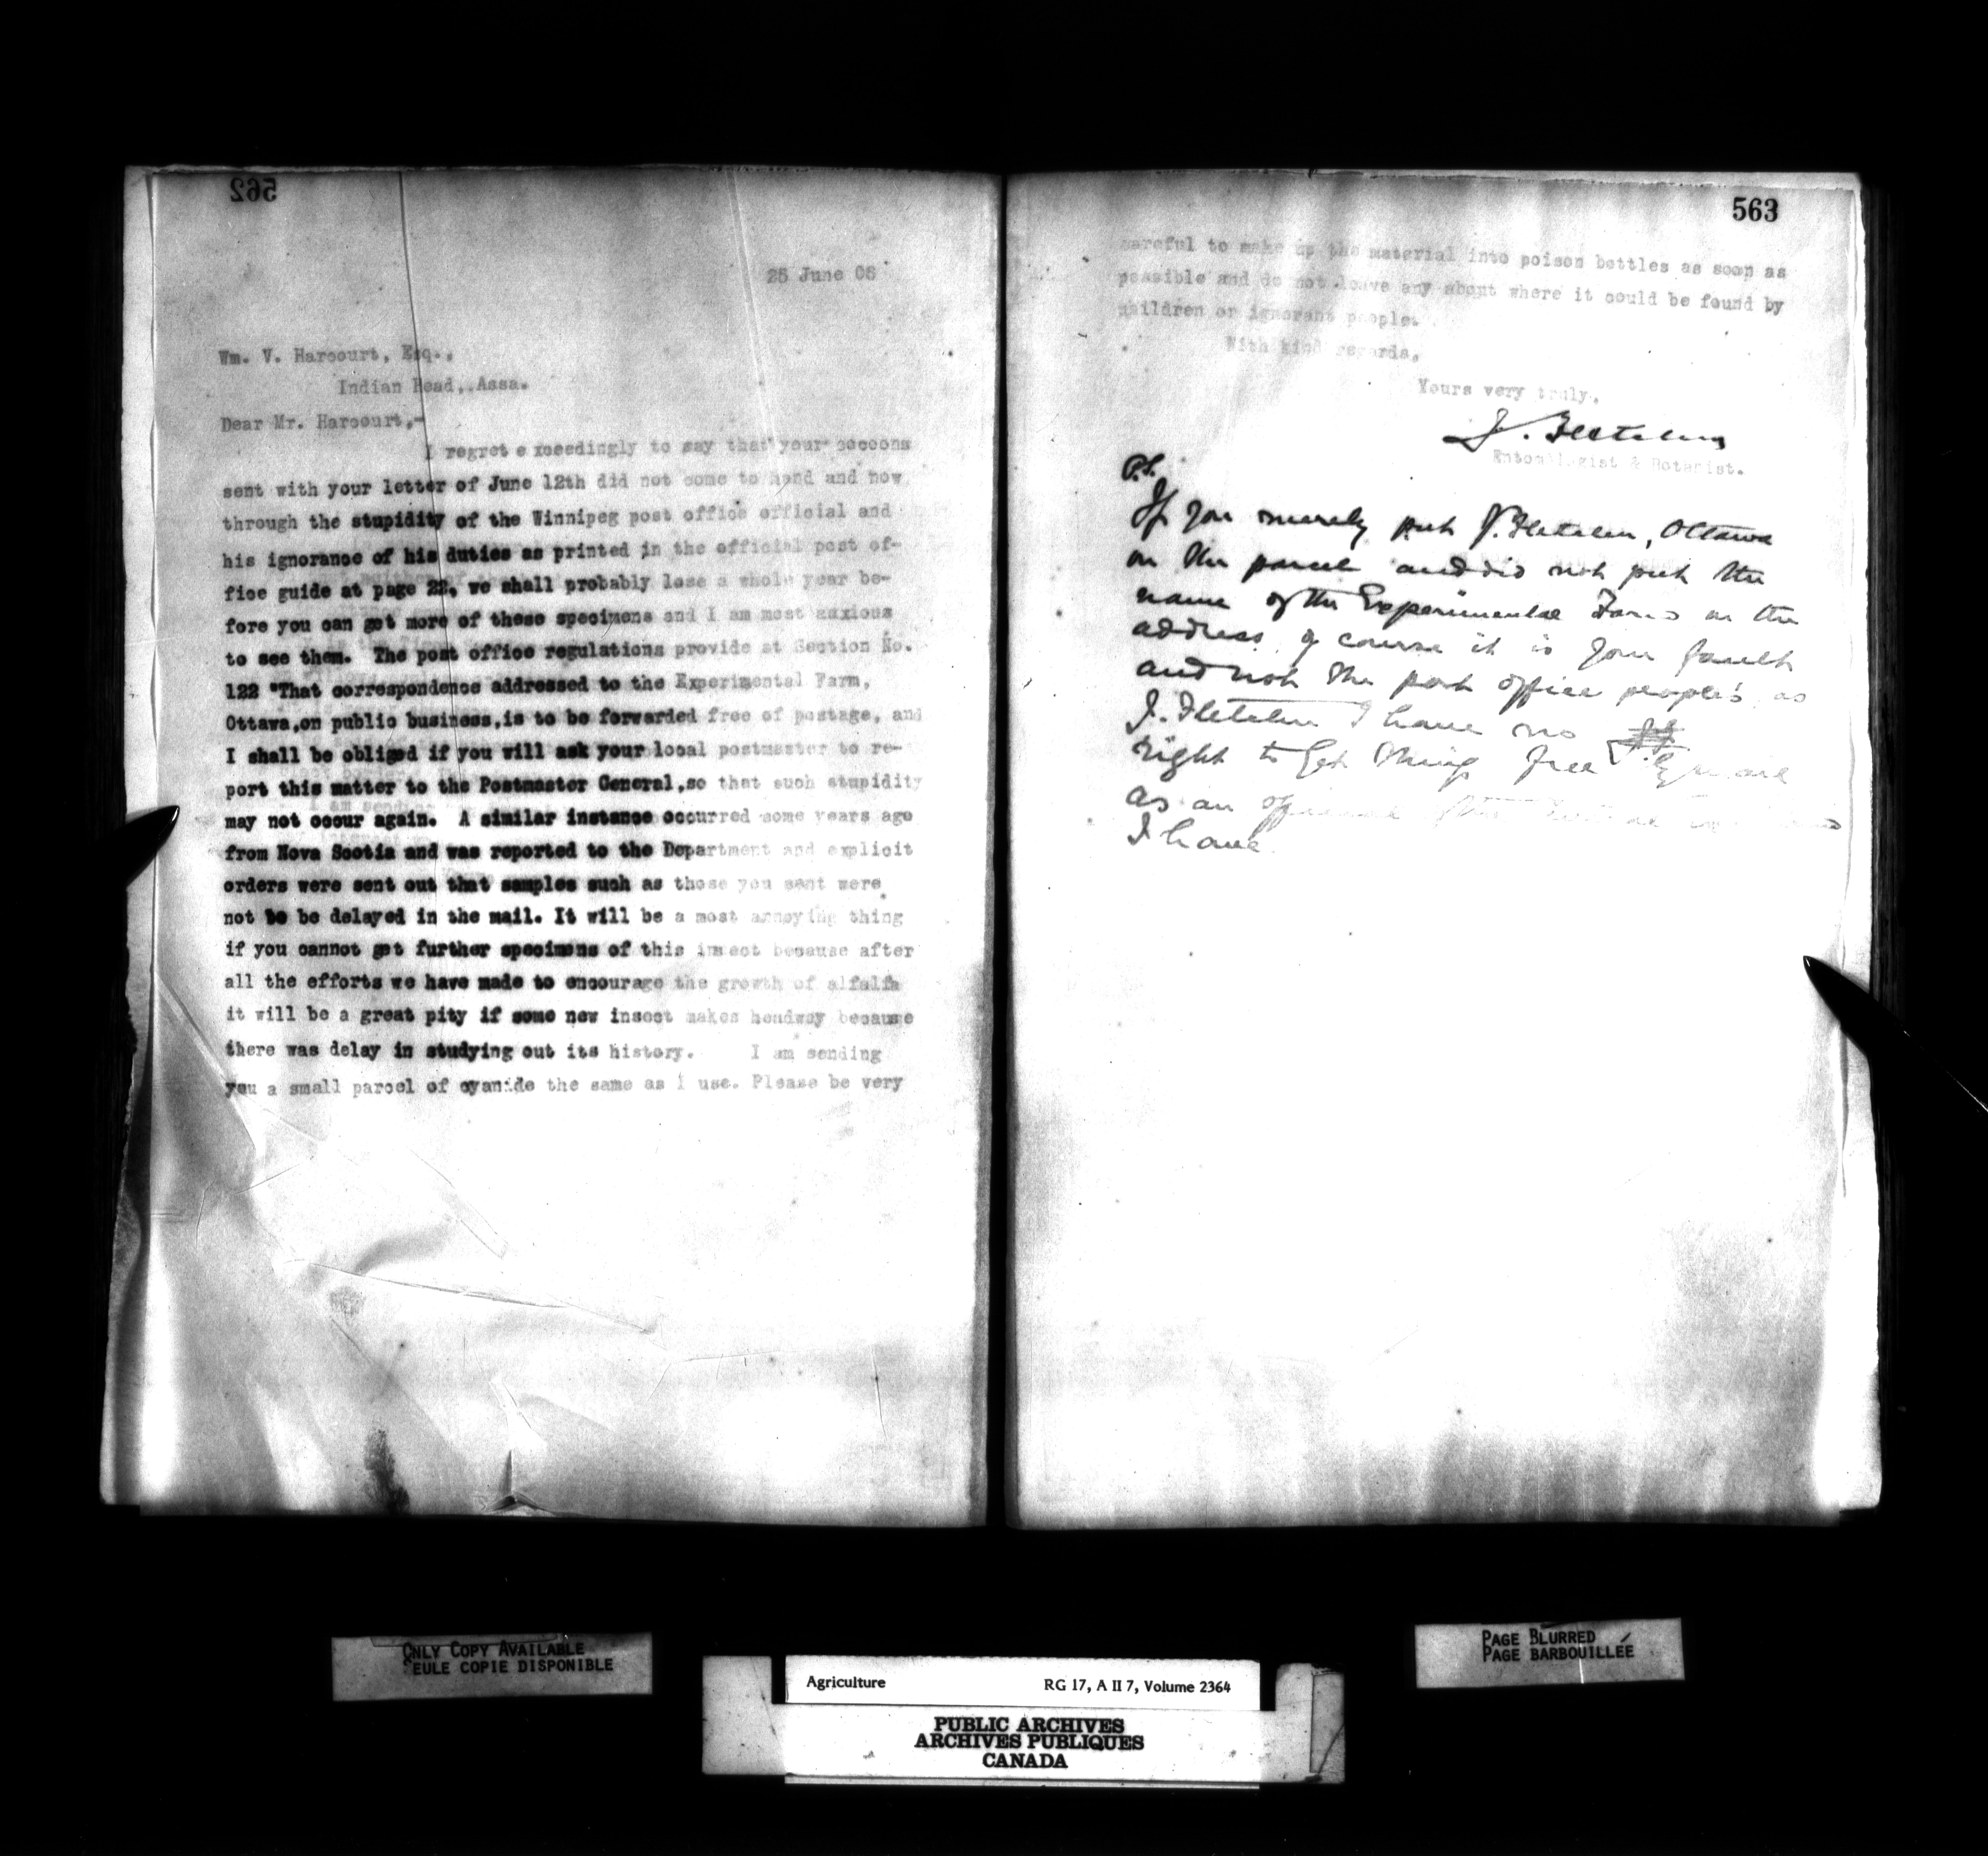 562
25 June 06
Wm. V. Harcourt, Esq.,
Indian Head, Assa.
Dear Mr. Harcourt,-
I regret exceedingly to say that your cocoons
sent with your letter of June 12th did not come to hand and now
through the stupidity of the Winnipeg post office official and
his ignorance of his duties as printed in the official post of-
fice guide at page 22, we shall probably lose a whole year be-
fore you can get more of these specimens and I am most anxious
to see them. The post office regulations provide at Section No.
122 "That correspondence addressed to the Experimental Farm,
Ottawa,on public business,is to be forwarded free of postage, and
I shall be obliged if you will ask your local postmaster to re-
port this matter to the Postmaster General,so that such stupidity
may not occur again. A similar instance occurred some years ago
from Nova Scotia and was reported to the Department and explicit
orders were sent out that samples such as those you sent were
not to be delayed in the mail. It will be a most annoying thing
if you cannot get further specimens of this insect because after
all the efforts we have made to encourage the growth of alfalfa
it will be a great pity if some new insect makes headway because
there was delay in studying out its history. I am sending
you a small parcel of cyanide the same as I use. Please be very
563
careful to make up the material into poison bottles as soon as
possible and do not leave any about where it could be found by
children or ignorant people.
With kind regards,
Yours very truly,
J. Fletcher
Entomologist & Botanist.
P.S.
If you merely put J. Fletcher, Ottawa
on the parcel and did not put the
name of the Experimental Farm in the
address, of course it is your fault
and not the post office people's as
J. Fletcher I have no
right to get things free by mail
as an officer of the
I have
ONLY COPY AVAILABLE
SEULE COPIE DISPONIBLE
PAGE BLURRED
PAGE BARBOUILLÉE
Agriculture RG 17, A II 7, Volume 2364
PUBLIC ARCHIVES
ARCHIVES PUBLIQUES
CANADA